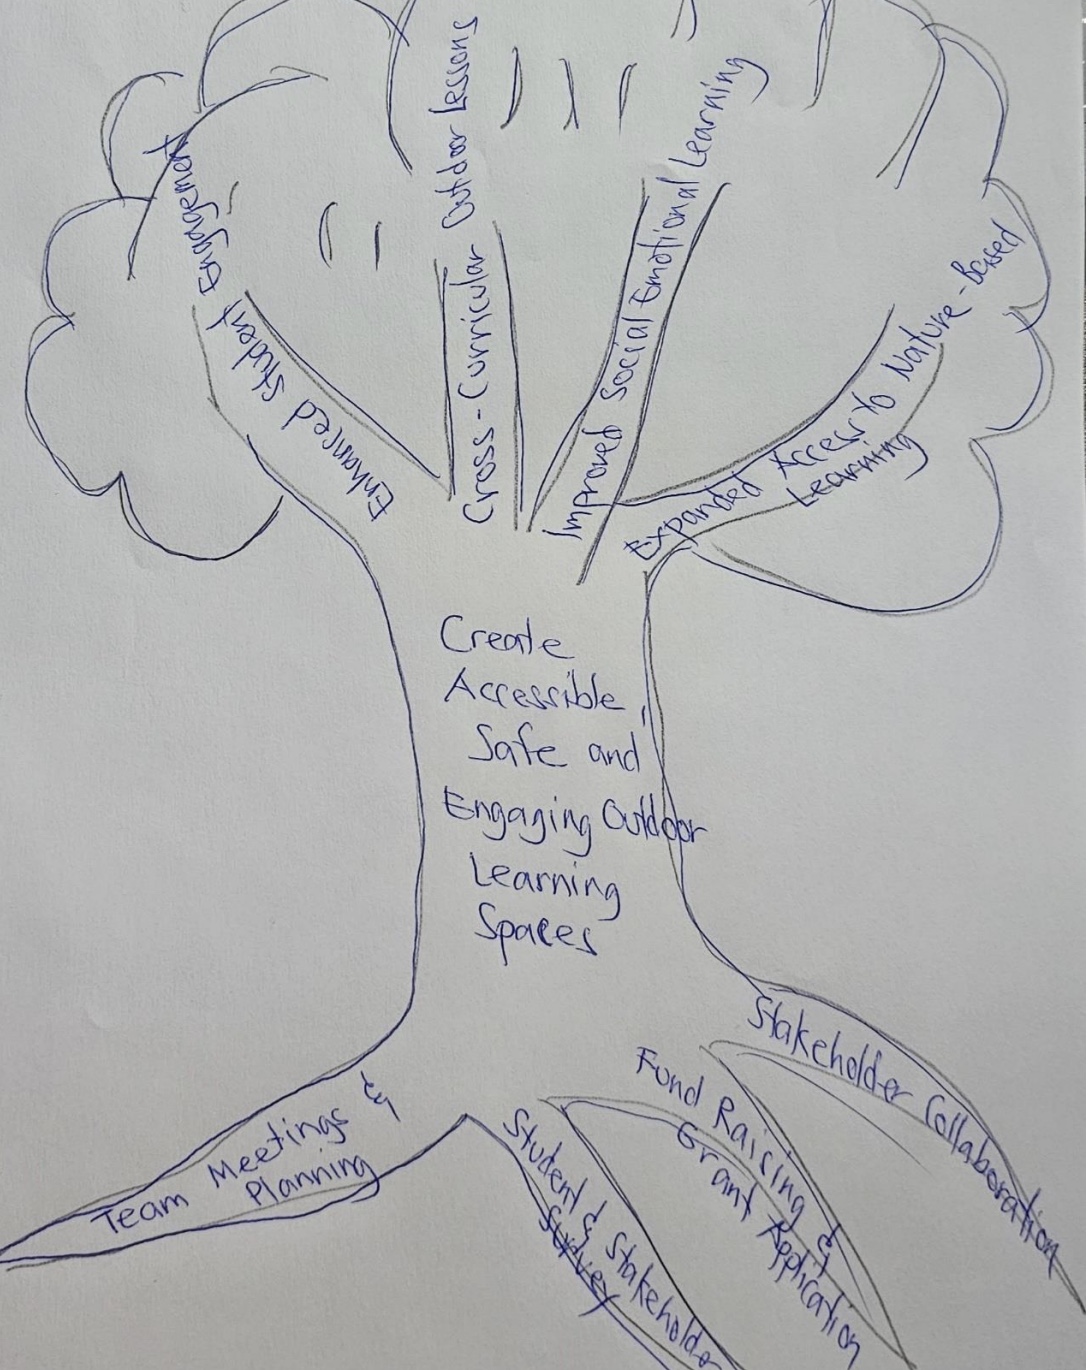 Enhanced Student Engagement
Cross-Curricular Outdoor Lessons
Improved Social Emotional Learning
Expanded Access to Nature-Based
Learning
Create
Accessible,
Safe and
Engaging Outdoor
Learning
Spaces
Team Meetings &
Planning
Student & Stakeholder
Survey
Fund Raising &
Grant Application
Stakeholder Collaboration